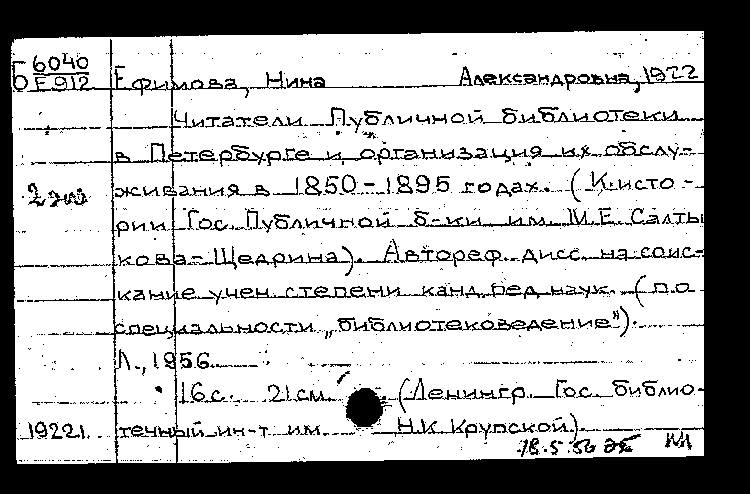 Б 6040
Е 912
Ефимова, Нина Александровна, 1922
Читатели Публичной библиотеки
в Петербурге и организация их обслу-
2 экз
живания в 1850-1895 годах. (К исто-
рии Гос. Публичной б-ки им. М.Е. Салты
кова-Щедрина). Автореф. дисс. на соис-
кание учен. степени канд. пед. наук. (по
специальности „библиотековедение").
Л., 1956.
16 с. 21 см. (Ленингр. Гос. библио-
1922г. течный ин-т им. Н.К. Крупской).
18.5.56